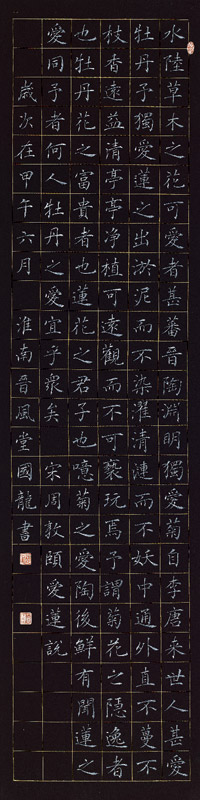 水陸草木之花可愛者甚蕃晉陶淵明獨愛菊自李唐来世人甚愛
牡丹予獨愛蓮之出淤泥而不染濯清漣而不妖中通外直不蔓不
枝香遠益清亭亭净植可遠觀而不可褻玩焉予謂菊花之隱逸者
也牡丹花之富貴者也蓮花之君子也噫菊之愛陶後鮮有聞蓮之
愛同予者何人牡丹之愛宜乎衆矣 宋周敦頤愛蓮説
歲次在甲午六月 淮南晉風堂國龍書